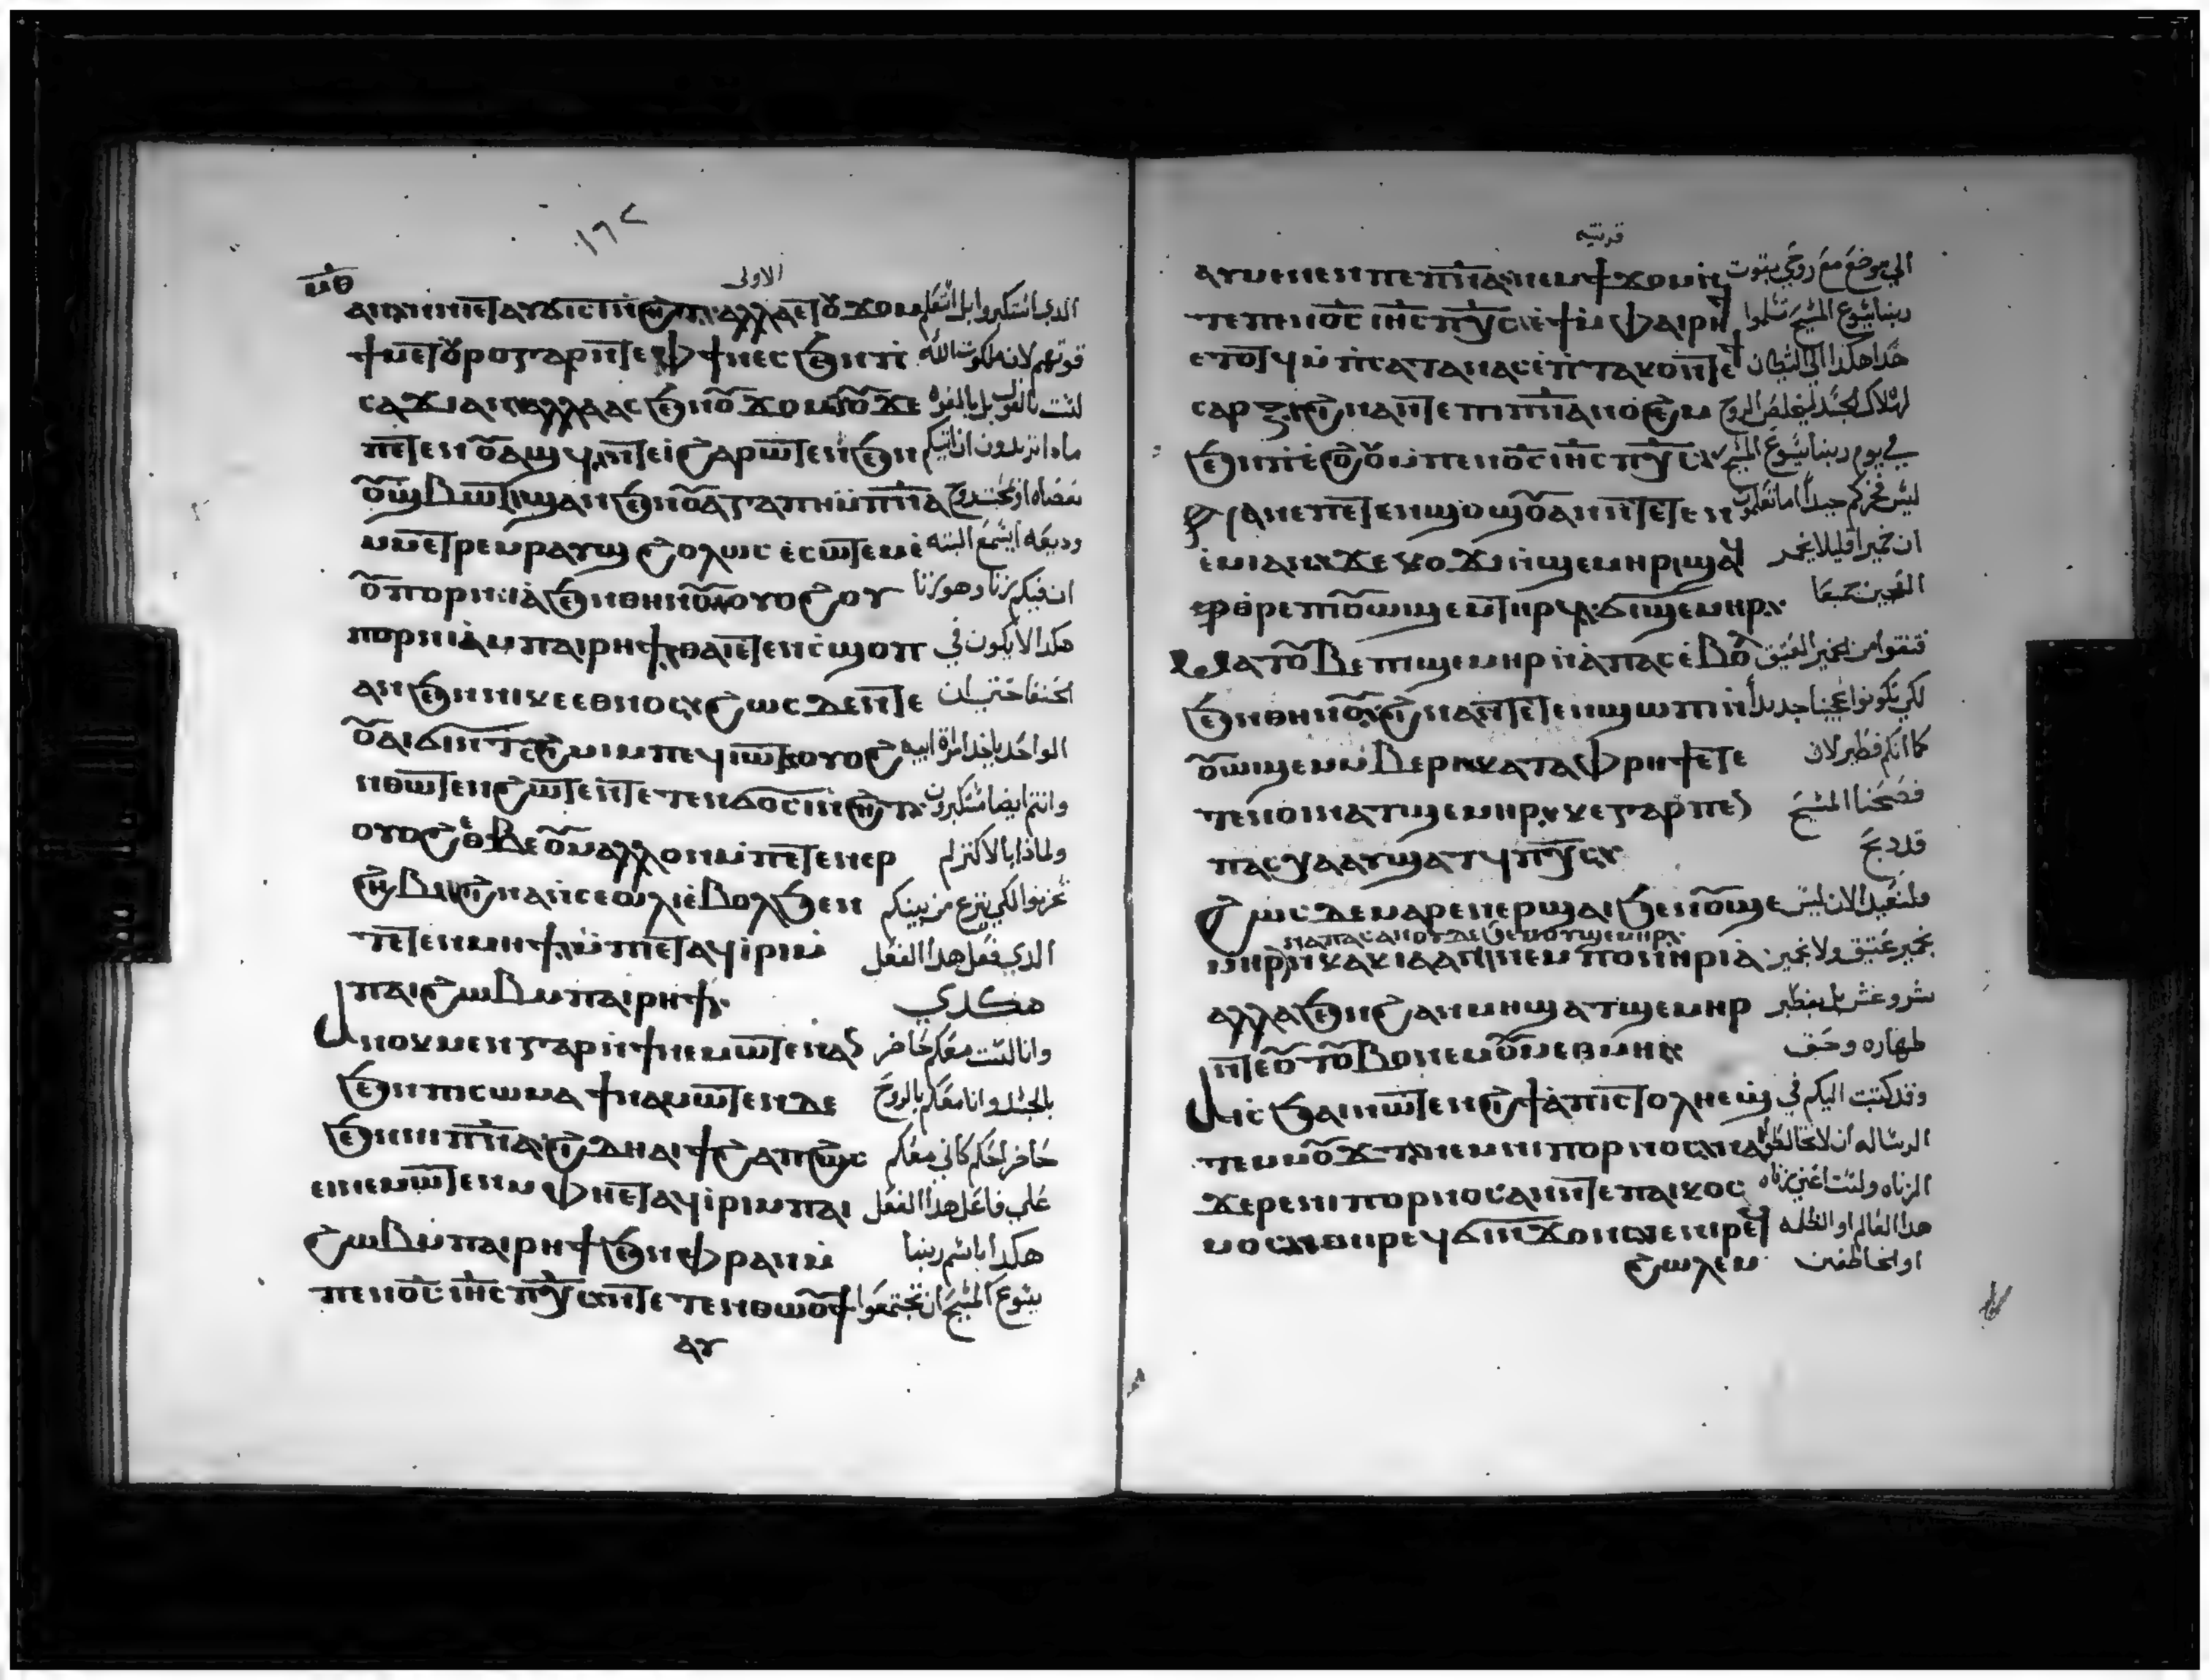 ١٦٢
ⲙ̅ⲑ̅ الاولى
ⲁⲛ ⲛⲛⲏⲉⲧⲁⲩϭⲓⲥⲓ ⲛϩⲏⲧ ⲁⲗⲗⲁ ⲉⲧⲟⲩϫⲟⲙ الدي استكبروا بل اتعلم
ϯⲙⲉⲧⲟⲩⲣⲟ ⲅⲁⲣ ⲛⲧⲉ ⲫϯ ⲛⲉⲥϧⲉⲛ ⲡⲓ قوتهم لانه ملكوت الله
ⲥⲁϫⲓ ⲁⲛ ⲁⲗⲗⲁ ⲁⲥϧⲉⲛ ⲟⲩϫⲟⲙ ⲟⲩ ϫⲉ ليست بالقول بل بالقوه
ⲡⲉⲧⲉⲧⲉⲛⲟⲩⲁϣϥ ⲛⲧⲁⲓ ϩⲁⲣⲱⲧⲉⲛ ϧⲉⲛ ماذا تريدون ان اتيكم
ⲟⲩϣⲃⲱⲧ ϣⲁⲛ ϧⲉⲛ ⲟⲩⲁⲅⲁⲡⲏ ⲙ̅ⲡ̅ⲛ̅ⲁ بعصاه او بمحبه وروح
ⲙⲙⲉⲧⲣⲉⲙⲣⲁⲩϣ ϩⲟⲗⲱⲥ ⲥⲉⲥⲱⲧⲉⲙ ⲉ ودیعه ایسمع البته
ⲟⲩⲡⲟⲣⲛⲓⲁ ϧⲉⲛ ⲑⲏⲛⲟⲩ ⲟⲩⲟϩ ⲟⲩ ان فيكم زنا وهو زنا
ⲡⲟⲣⲛⲓⲁ ⲙⲡⲁⲓⲣⲏϯ ⲑⲁⲓ ⲉⲧⲉⲛⲥϣⲟⲡ هكدا لا يكون في
ⲁⲛ ϧⲉⲛ ⲛⲓⲕⲉⲉⲑⲛⲟⲥ ϩⲱⲥⲇⲉ ⲛⲧⲉ الحنفا حتى ان
ⲟⲩⲁⲓ ϭⲓ ⲛⲧϩⲓⲙⲓ ⲙⲡⲉϥⲓⲱⲧ ⲟⲩⲟϩ الواحد ياخد امراة ابيه
ⲛⲑⲱⲧⲉⲛ ϩⲱⲧⲉⲛ ⲧⲉⲧⲉⲛϭⲟⲥⲓ ⲛϩⲏⲧ وانتم ايضا مستكبرون
ⲟⲩⲟϩ ⲉⲑⲃⲉ ⲟⲩ ⲙⲁⲗⲗⲟⲛ ⲙⲡⲉⲧⲉⲛⲉⲣ ولماذا بالاكثر لم
ϩⲏⲃⲓ ϩⲓⲛⲁ ⲛⲥⲉⲱⲗⲓ ⲉⲃⲟⲗ ϧⲉⲛ تحزنوا لكي ينزع من بينكم
ⲧⲉⲧⲉⲛⲙⲏϯ ⲙⲡⲉⲧⲁϥⲓⲣⲓ ⲙ الدي فعل هدا الفعل
ⲡⲁⲓϩⲱⲃ ⲙⲡⲁⲓⲣⲏϯ هكدي
ⲁⲛⲟⲕ ⲙⲉⲛ ⲅⲁⲣ ⲛϯⲛⲉⲙⲱⲧⲉⲛ ⲁⲛ وانا لست معكم حاضر
ϧⲉⲛ ⲡⲓⲥⲱⲙⲁ ϯⲛⲉⲙⲱⲧⲉⲛ ⲇⲉ بالجسد وانا معكم بالروح
ϧⲉⲛ ⲡⲓⲡ̅ⲛ̅ⲁ ϩⲏⲇⲏ ⲁⲓϯϩⲁⲡ ϩⲱⲥ حاضر احكم كاني معكم
ⲉⲓⲛⲉⲙⲱⲧⲉⲛ ⲙⲫⲏⲉⲧⲁϥⲓⲣⲓ ⲙⲡⲁⲓ علي فاعل هدا الفعل
ϩⲱⲃ ⲙⲡⲁⲓⲣⲏϯ ϧⲉⲛ ⲫⲣⲁⲛ ⲙ هكدا باسم ربنا
ⲡⲉⲛⲟ̅ⲥ̅ ⲓⲏ̅ⲥ̅ ⲡⲭ̅ⲥ̅ ⲛⲧⲉⲧⲉⲛⲑⲱⲟⲩϯ يسوع المسيح ان تجتمعوا
ⲁⲩ
قرنتيه
ⲁⲩⲙⲁ ⲛⲉⲙ ⲡⲉⲡ̅ⲛ̅ⲁ ⲛⲉⲙ ϯϫⲟⲙ ⲛ الي موضع مع روحي بقوت
ⲧⲉ ⲡⲉⲛⲟ̅ⲥ̅ ⲓⲏ̅ⲥ̅ ⲡⲭ̅ⲥ̅ ⲉϯ ⲙⲫⲁⲓ ⲙⲡⲁⲓⲣⲏϯ ربنا يسوع المسيح تسلموا
ⲉⲧⲟⲧϥ ⲙⲡⲥⲁⲧⲁⲛⲁⲥ ⲉⲡⲧⲁⲕⲟ ⲛⲧⲉ ϯ هدا هكدا الي الشيطان
ⲥⲁⲣⲝ ϩⲓⲛⲁ ⲛⲧⲉ ⲡⲓⲡ̅ⲛ̅ⲁ ⲛⲟϩⲉⲙ لهلاك الجسد ليخلص الروح
ϧⲉⲛ ⲡⲓⲉϩⲟⲟⲩ ⲙⲡⲉⲛⲟ̅ⲥ̅ ⲓⲏ̅ⲥ̅ ⲡⲭ̅ⲥ̅ في يوم ربنا يسوع المسيح
ⲛⲁⲛⲉ ⲡⲉⲧⲉⲛϣⲟⲩϣⲟⲩ ⲁⲛ ⲛⲧⲉⲧⲉⲛ ليس فخركم جيدا اما تعلمون
ⲉⲙⲓ ⲁⲛ ϫⲉ ⲕⲟⲩϫⲓ ⲛϣⲉⲙⲏⲣ ϣⲁϥ ان خميرا قليلا يخمر
ⲑⲣⲉ ⲡⲓⲟⲩⲱϣⲉⲙ ⲧⲏⲣϥ ϭⲓϣⲉⲙⲏⲣ العجين جميعا
ⲙⲁⲧⲟⲩⲃⲉ ⲡⲓϣⲉⲙⲏⲣ ⲛⲁⲡⲁⲥ ⲉⲃⲟⲗ فتنقوا من الخمير العتيق
ϧⲉⲛ ⲑⲏⲛⲟⲩ ϩⲓⲛⲁ ⲛⲧⲉⲧⲉⲛϣⲱⲡⲓ ⲛ لكي تكونوا عجينا جديدا
ⲟⲩⲱϣⲉⲙ ⲙⲃⲉⲣⲓ ⲕⲁⲧⲁ ⲫⲣⲏϯ ⲉⲧⲉ كما انكم فطير لان
ⲧⲉⲛⲟⲓ ⲛⲁⲧϣⲉⲙⲏⲣ ⲕⲉ ⲅⲁⲣ ⲡⲉⲛ فصحنا المسيح
ⲡⲁⲥⲭⲁ ⲁⲩϣⲁⲧϥ ⲡⲭ̅ⲥ̅ قد دبح
ϩⲱⲥⲇⲉ ⲙⲁⲣⲉⲛⲉⲣϣⲁⲓ ϧⲉⲛ ⲟⲩϣⲉ فلنعيد الان ليس
ⲛⲁⲡⲁⲥ ⲁⲛ ⲟⲩⲇⲉ ϧⲉⲛ ⲟⲩϣⲉⲙⲏⲣ
ⲙⲏⲣ ⲛⲕⲁⲕⲓⲁ ⲛⲉⲙ ⲡⲟⲛⲏⲣⲓⲁ بخمير عتيق ولا بخمير
ⲁⲗⲗⲁ ϧⲉⲛ ϩⲁⲛⲙⲏϣ ⲁⲧϣⲉⲙⲏⲣ شر وغش بل بفطير
ⲛⲧⲉ ⲟⲩⲧⲟⲩⲃⲟ ⲛⲉⲙ ⲟⲩⲙⲉⲑⲙⲏⲓ طهاره وحق
ⲁⲓⲥϧⲁⲓ ⲛⲱⲧⲉⲛ ϩⲓ ϯⲉⲡⲓⲥⲧⲟⲗⲏ ⲉϣ وقد كتبت اليكم في
ⲧⲉⲙⲙⲟⲩϫⲧ ⲛⲉⲙ ⲛⲓⲡⲟⲣⲛⲟⲥ الرساله ان لا تخالطوا
ϫⲉⲣⲉ ⲛⲓⲡⲟⲣⲛⲟⲥ ⲁⲛ ⲛⲧⲉ ⲡⲁⲓⲕⲟⲥ الزناه ولست اعني زناه
ⲙⲟⲥ ⲛⲓⲣⲉϥϭⲓ ⲛϫⲟⲛⲥ ⲛⲉⲙ ⲛⲓⲣⲉϥ هدا العالم او الظلمه
ϩⲱⲗⲉⲙ او الخاطفين